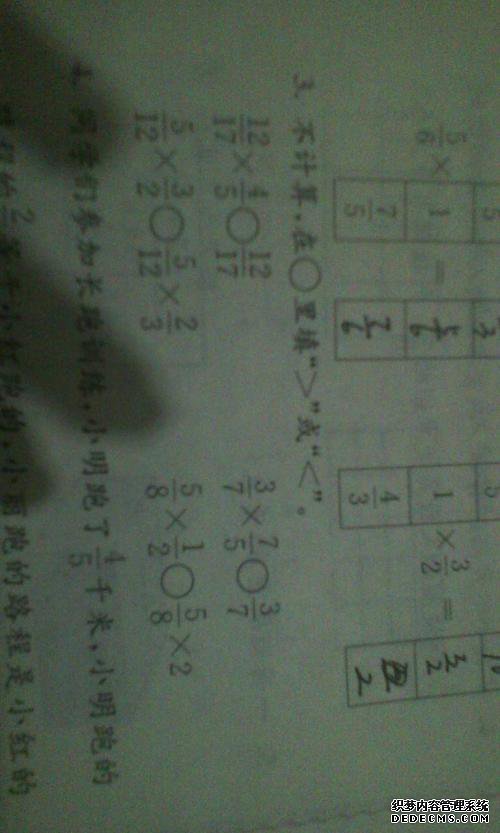 5/6 × 1 = 5/6 1 × 3/2 = 3/2
7/5 7/6 4/3 2
3. 不计算,在○里填“>”或“<”。
12/17 × 4/5 ○ 12/17 3/7 × 7/5 ○ 3/7
5/12 × 3/2 ○ 5/12 × 2/3 5/8 × 1/2 ○ 5/8 × 2
4. 同学们参加长跑训练,小明跑了4/5千米,小明跑的
路程的 等于小红跑的,小丽跑的路程是小红的
织梦内容管理系统
DEDECMS.COM